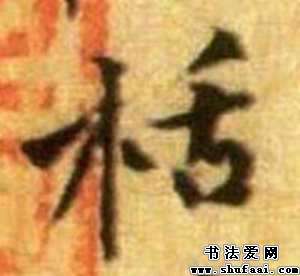 栝
书法爱网
www.shufaai.com